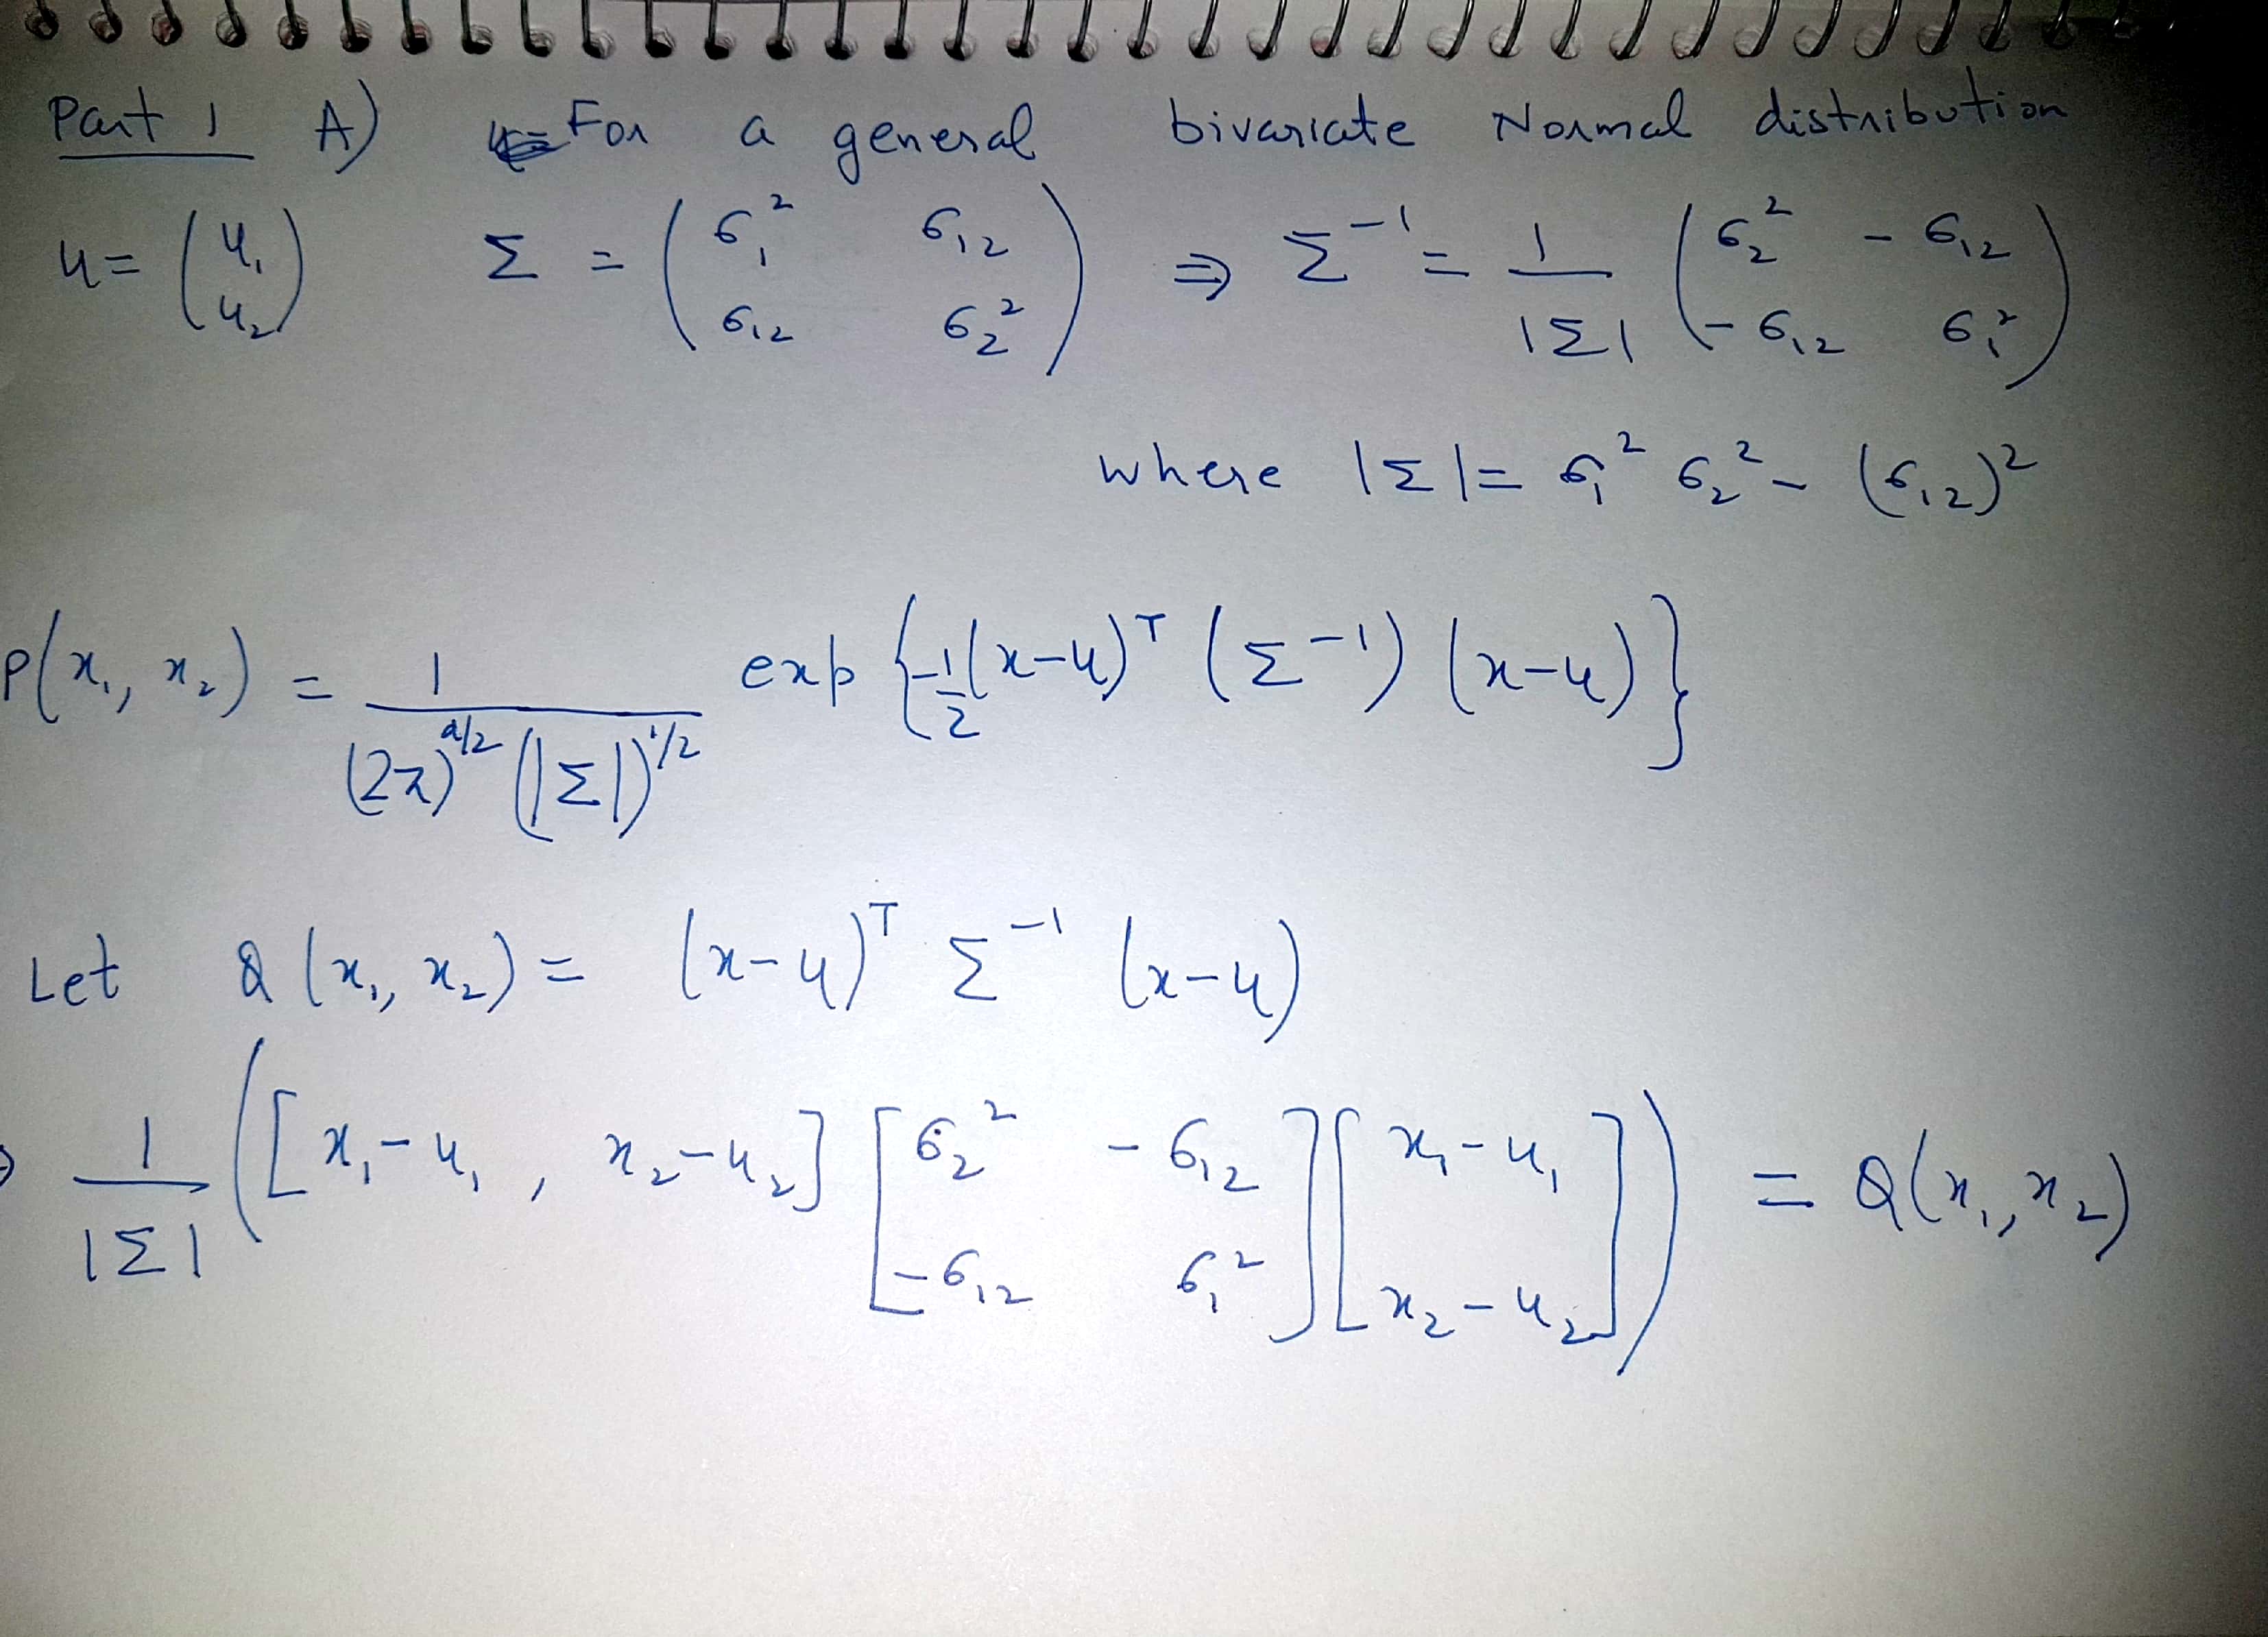 Part 1 A) For a general bivariate Normal distribution
μ = (μ₁ μ₂) Σ = (σ₁² σ₁₂ σ₁₂ σ₂²) ⇒ Σ⁻¹ = 1/|Σ| (σ₂² -σ₁₂ -σ₁₂ σ₁²)
where |Σ| = σ₁² σ₂² - (σ₁₂)²
P(x₁, x₂) = 1/((2π)^(2/2) (|Σ|)^(1/2)) exp {-1/2 (x-μ)ᵀ (Σ⁻¹) (x-μ)}
Let Q(x₁, x₂) = (x-μ)ᵀ Σ⁻¹ (x-μ)
⇒ 1/|Σ| ([x₁-μ₁, x₂-μ₂] [σ₂² -σ₁₂ -σ₁₂ σ₁²] [x₁-μ₁ x₂-μ₂]) = Q(x₁, x₂)